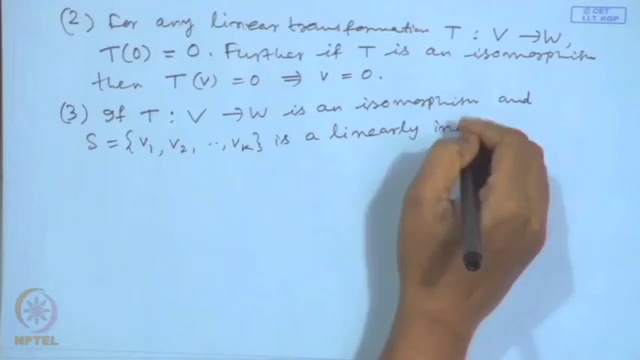 (2) For any linear transformation T : V → W,
T(0) = 0. Further if T is an isomorphism
then T(v) = 0 ⟹ v = 0.
(3) If T : V → W is an isomorphism and
S = {v₁, v₂, ··, vₖ} is a linearly in
© CET
I.I.T. KGP
NPTEL